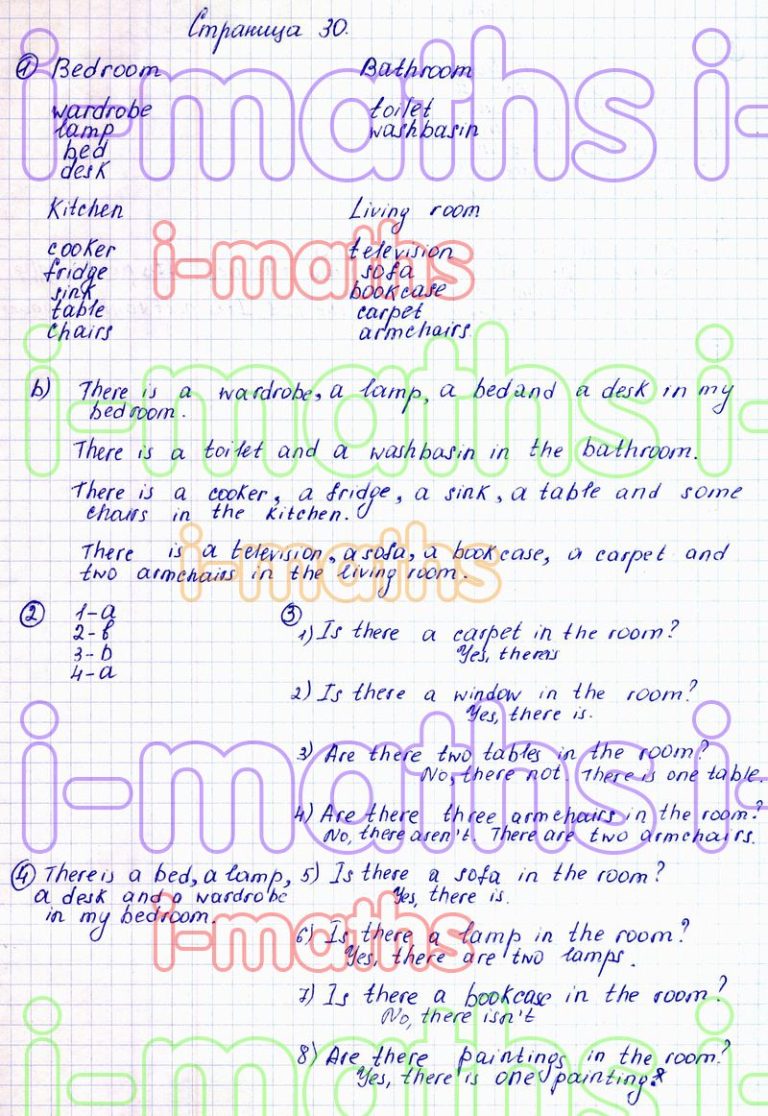 Страница 30.
① Bedroom Bathroom
wardrobe toilet
lamp washbasin
bed
desk
Kitchen Living room
cooker television
fridge sofa
sink bookcase
table carpet
chairs armchairs.
b) There is a wardrobe, a lamp, a bed and a desk in my
bedroom.
There is a toilet and a washbasin in the bathroom.
There is a cooker, a fridge, a sink, a table and some
chairs in the kitchen.
There is a television, a sofa, a bookcase, a carpet and
two armchairs in the living room.
② 1-a
2-b
3-b
4-a
③
1) Is there a carpet in the room?
Yes, there is
2) Is there a window in the room?
Yes, there is.
3) Are there two tables in the room?
No, there not. There is one table.
4) Are there three armchairs in the room?
No, there aren't. There are two armchairs.
④ There is a bed, a lamp,
a desk and a wardrobe
in my bedroom.
5) Is there a sofa in the room?
Yes, there is.
6) Is there a lamp in the room?
Yes, there are two lamps.
7) Is there a bookcase in the room?
No, there isn't
8) Are there paintings in the room?
Yes, there is one painting.
i-maths i-
i-maths
i-maths i-
i-maths
i-maths i-
i-maths
i-maths i-